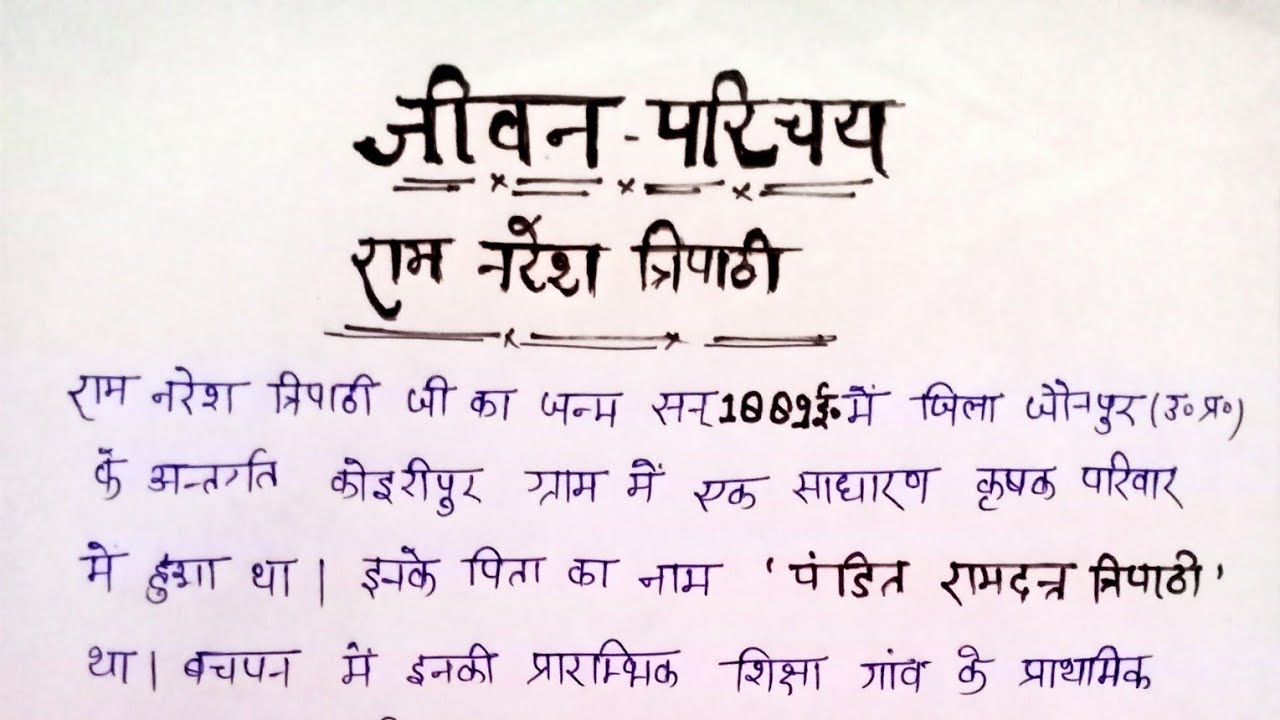 जीवन-परिचय
राम नरेश त्रिपाठी
राम नरेश त्रिपाठी जी का जन्म सन् 1889ई॰ में जिला जौनपुर (उ॰ प्र॰)
के अन्तर्गत कोइरीपुर ग्राम में एक साधारण कृषक परिवार
में हुआ था। इनके पिता का नाम 'पंडित रामदत्त त्रिपाठी'
था। बचपन में इनकी प्रारम्भिक शिक्षा गांव के प्राथमिक